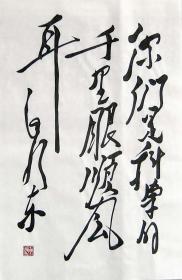 你们是科学的
千里眼顺风
耳 毛泽东